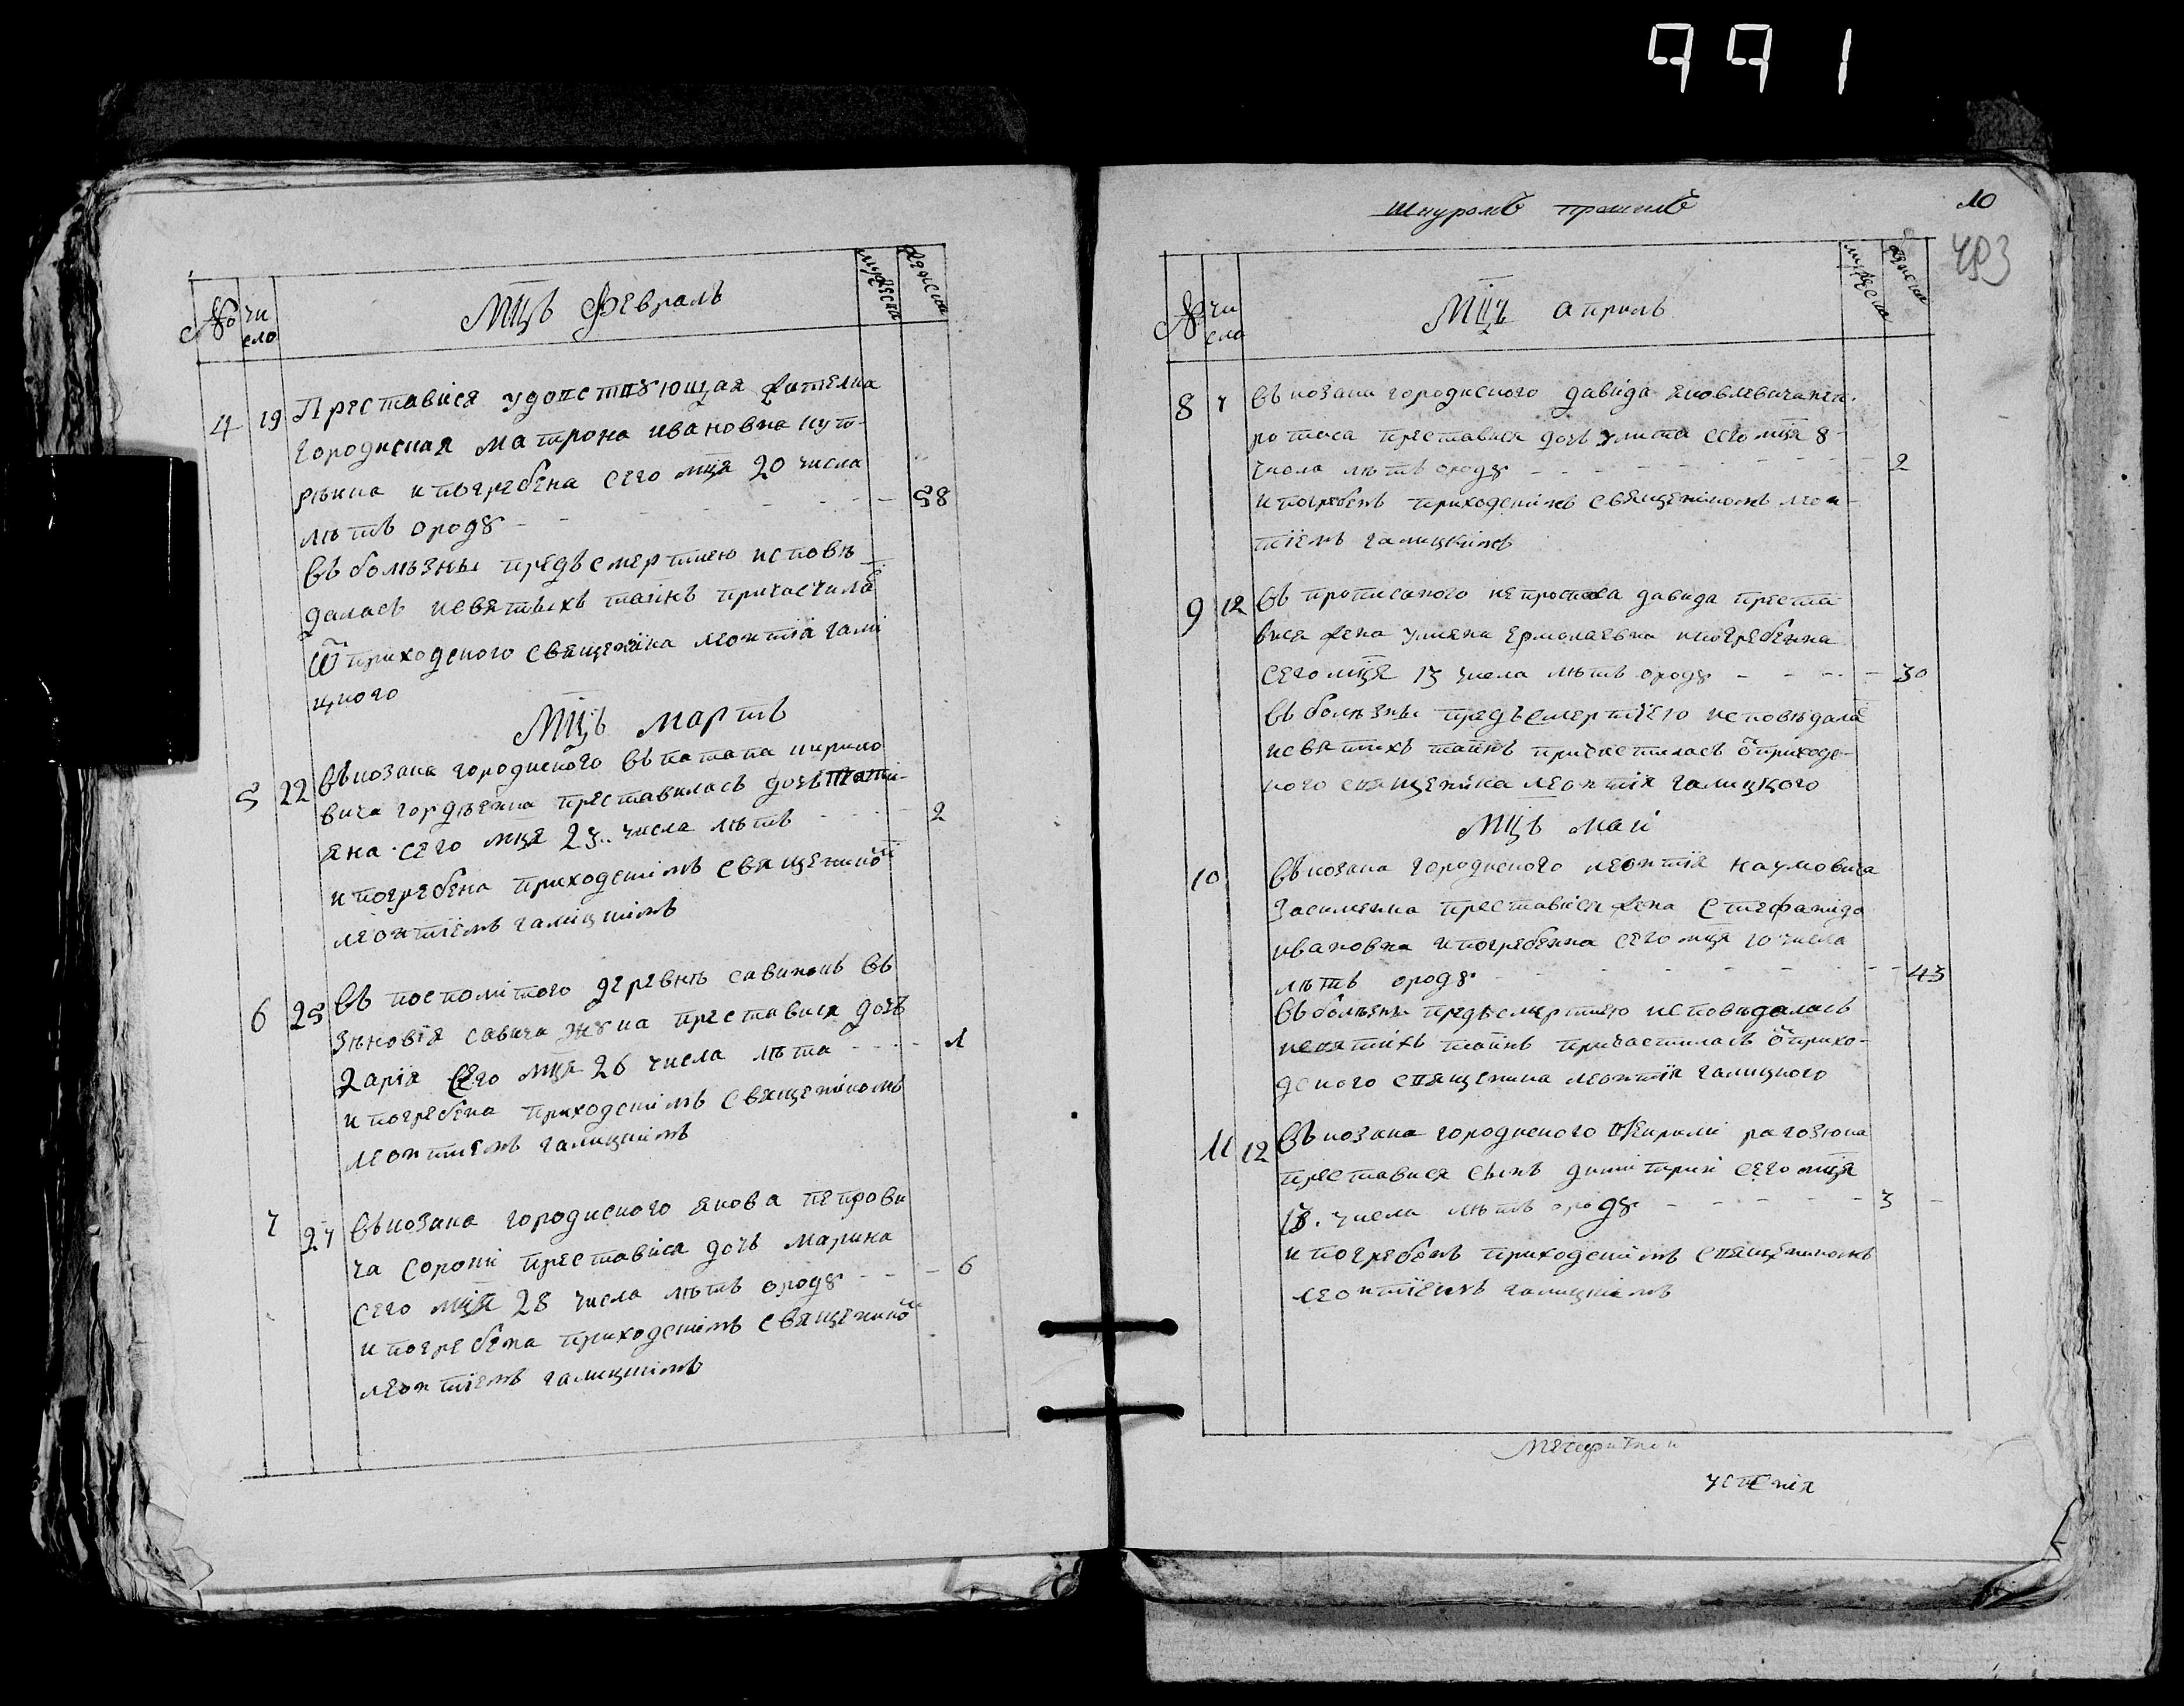 991
№
чи
сло
Мцъ Февраль
мужеска
женска
4 19 Преставися удовствующая жителка
городиская Матрона Ивановна
и погребена сего мця 20 числа
лѣтъ ѡроду - - - 58
въ болѣзны предъ смертию исповѣ
далась и святыхъ таинъ причастила
ѿ приходского священика Леонтиа Гали
цкого
Мцъ Мартъ
5 22 въ козака городиского Потапа Кирило
вича Гордѣенка преставилась дочь Тати-
яна сего мця 23 числа лѣтъ - - - 2
и погребена приходскимъ священико
Леонтиемъ Галицкимъ
6 25 въ посполитого деревнѣ Савинокъ въ
Зѣновія Савича Жука преставися дочь
Дарія сего мця 26 числа лѣта - - - 1
и погребена приходскимъ священикомъ
Леонтиемъ Галицкимъ
7 27 въ козака городиского Якова Петрови
ча Сороки преставися дочь Марина
сего мця 28 числа лѣтъ ѡроду - - - 6
и погребена приходскимъ священико
Леонтиемъ Галицкимъ
шнуромъ
10
493
№
чи
сло
Мцъ Априль
мужеска
женска
8 7 въ козака городиского Давида Яковлевича Неп-
рокоса преставися дочь Улита сего мця 8
числа лѣтъ ѡроду - - - 2
и погребенъ приходскимъ священикомъ Леон-
тіемъ Галицкимъ
9 12 въ прописаного Непрокоса Давида преста
вися жена Ермолаевна и погребенна
сего мця 13 числа лѣтъ ѡроду - - - 30
въ болѣзны предъ смертіею исповѣдала
и святихъ таинъ причастилась ѿ приходс-
кого священика Леонтія Галицкого
Мцъ Маи
10 въ козака городиского Леонтія Наумовича
Засименка преставися жена Стефанида
Ивановна и погребенна сего мця 10 числа
лѣтъ ѡроду - - - 43
въ болѣзны предъ смертию исповѣдалась
и святихъ таинъ причастилась ѿ прихо-
дского священика Леонтія Галицкого
11 12 въ козака городиского Рагозюка
преставися сынъ Димитрий сего мця
13 числа лѣтъ ѡроду - - - 3
и погребенъ приходскимъ священикомъ
Леонтіемъ Галицкимъ